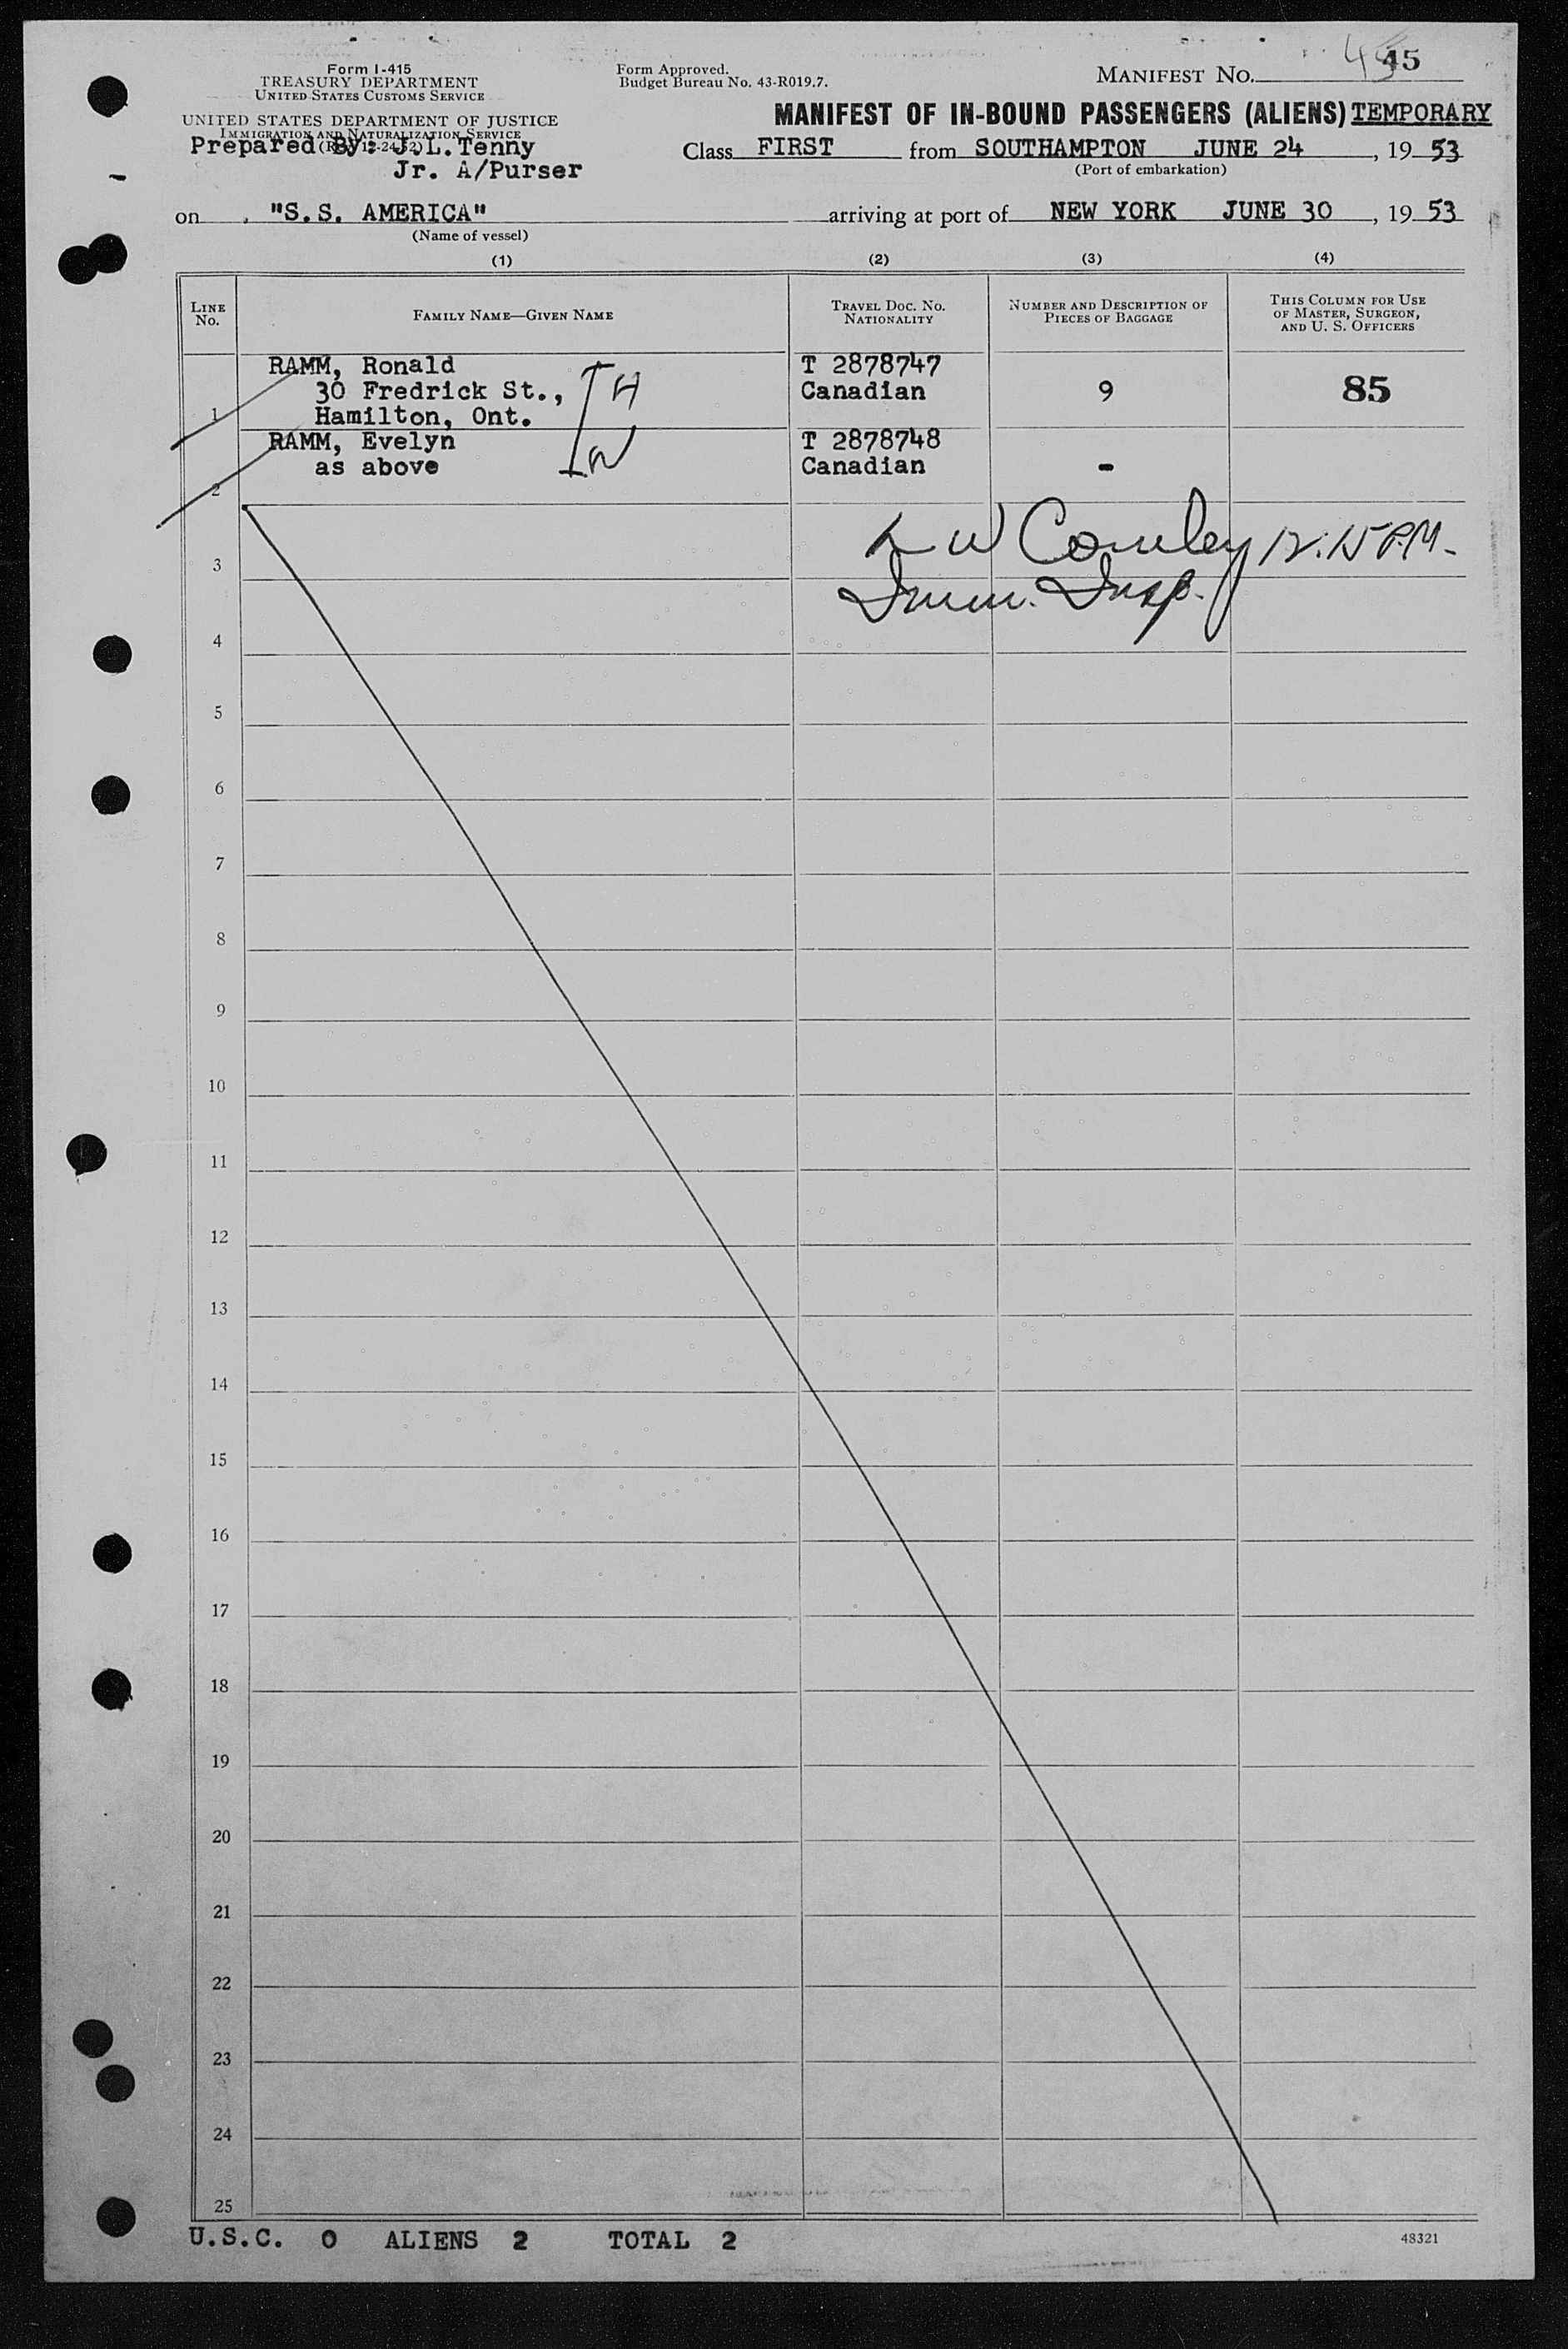 Form I-415
TREASURY DEPARTMENT
UNITED STATES CUSTOMS SERVICE
UNITED STATES DEPARTMENT OF JUSTICE
IMMIGRATION AND NATURALIZATION SERVICE
Prepared By: J.L. Tenny
Jr. A/Purser
Form Approved.
Budget Bureau No. 43-R019.7.
MANIFEST No. 45
MANIFEST OF IN-BOUND PASSENGERS (ALIENS) TEMPORARY
Class FIRST from SOUTHAMPTON JUNE 24, 19 53
(Port of embarkation)
on "S.S. AMERICA" arriving at port of NEW YORK JUNE 30, 19 53
(Name of vessel)
(1) (2) (3) (4)
LINE No. FAMILY NAME—GIVEN NAME TRAVEL DOC. No. NATIONALITY NUMBER AND DESCRIPTION OF PIECES OF BAGGAGE THIS COLUMN FOR USE OF MASTER, SURGEON, AND U. S. OFFICERS
RAMM, Ronald T 2878747
30 Fredrick St., H Canadian 9 85
1 Hamilton, Ont.
RAMM, Evelyn W T 2878748
as above Canadian -
2
3 W Cowley 12:15 P.M.
Imm. Insp.
4
5
6
7
8
9
10
11
12
13
14
15
16
17
18
19
20
21
22
23
24
25
U.S.C. 0 ALIENS 2 TOTAL 2
48321